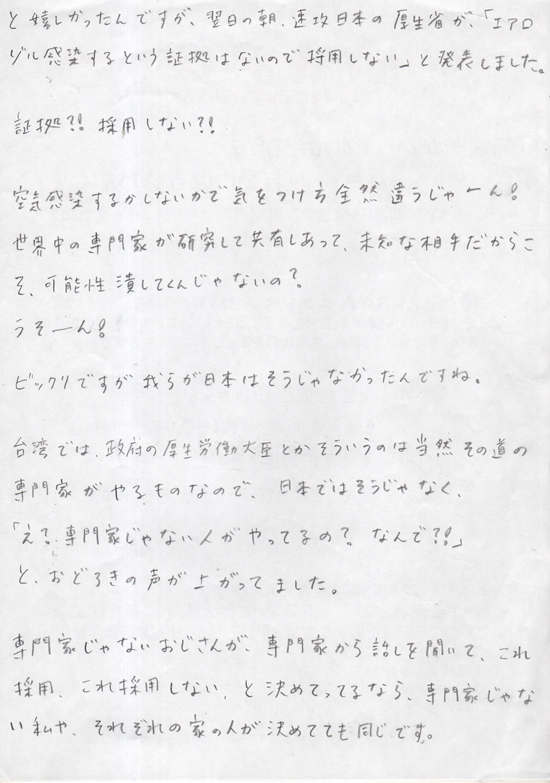 と嬉しかったんですが、翌日の朝、速攻日本の厚生省が、「エアロ
ゾル感染するという証拠はないので採用しない」と発表しました。
証拠?! 採用しない?!
空気感染するかしないかで気をつけ方全然違うじゃーん!
世界中の専門家が研究して共有しあって、未知な相手だからこ
そ、可能性潰してくんじゃないの?
うそーん!
ビックリですが我らが日本はそうじゃなかったんですね。
台湾では、政府の厚生労働大臣とかそういうのは当然その道の
専門家がやるものなので、日本ではそうじゃなく、
「え?専門家じゃない人がやってるの?なんで?!」
と、おどろきの声が上がってました。
専門家じゃないおじさんが、専門家から話しを聞いて、これ
採用、これ採用しない、と決めてってるなら、専門家じゃな
い私や、それぞれの家の人が決めてても同じです。